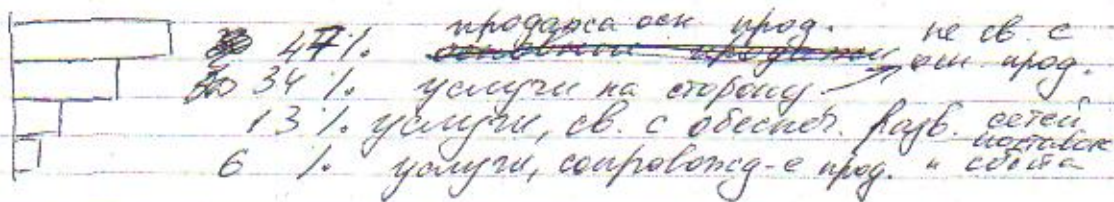 47% продажа осн прод.
34 % услуги на сторону → не св. с осн прод.
13% услуги, св. с обеспеч. разв. сетей поставок и сбыта
6 % услуги, сопровожд-е прод.